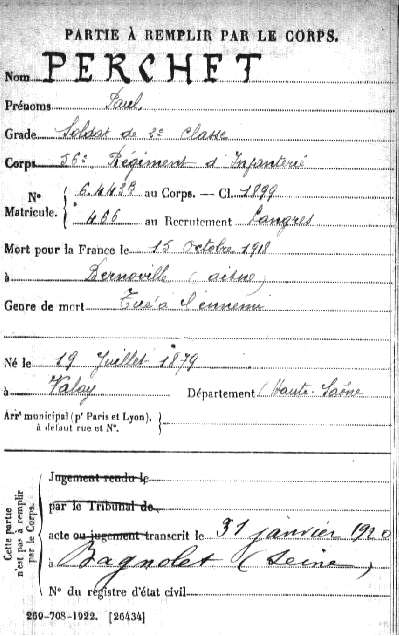 PARTIE À REMPLIR PAR LE CORPS.
Nom PERCHET
Prénoms Paul
Grade Soldat de 2e Classe
Corps 56e Régiment d'Infanterie
N° Matricule. { 6.442B au Corps. — Cl. 1899
466 au Recrutement Langres
Mort pour la France le 15 octobre 1918
à Bernoville (aisne)
Genre de mort Tué à l'ennemi
Né le 19 Juillet 1879
à Valay Département (Haute-Saône
Arrt municipal (pr Paris et Lyon), à défaut rue et N°.
Cette partie n'est pas à remplir par le Corps.
Jugement rendu le
par le Tribunal de
acte ou jugement transcrit le 31 janvier 1920
à Bagnolet (Seine)
N° du registre d'état civil
269-708-1922. [26434]